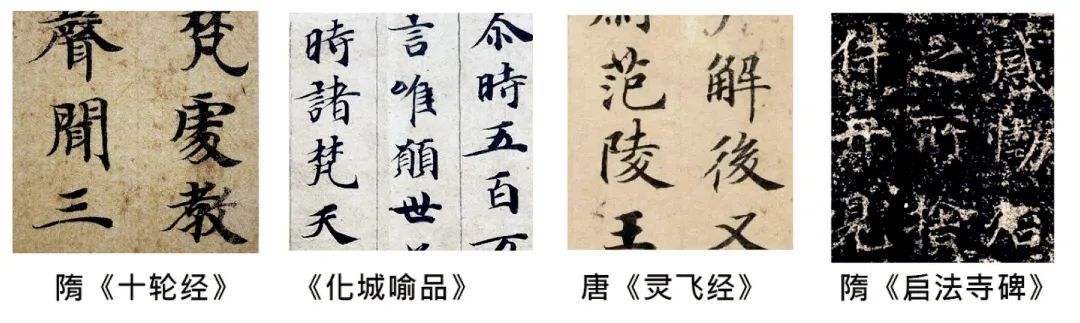 梵處教
聲聞三
尒時五百万
言唯願世
時諸梵天
解後又
范陵王
之所
隋《十轮经》
《化城喻品》
唐《灵飞经》
隋《启法寺碑》